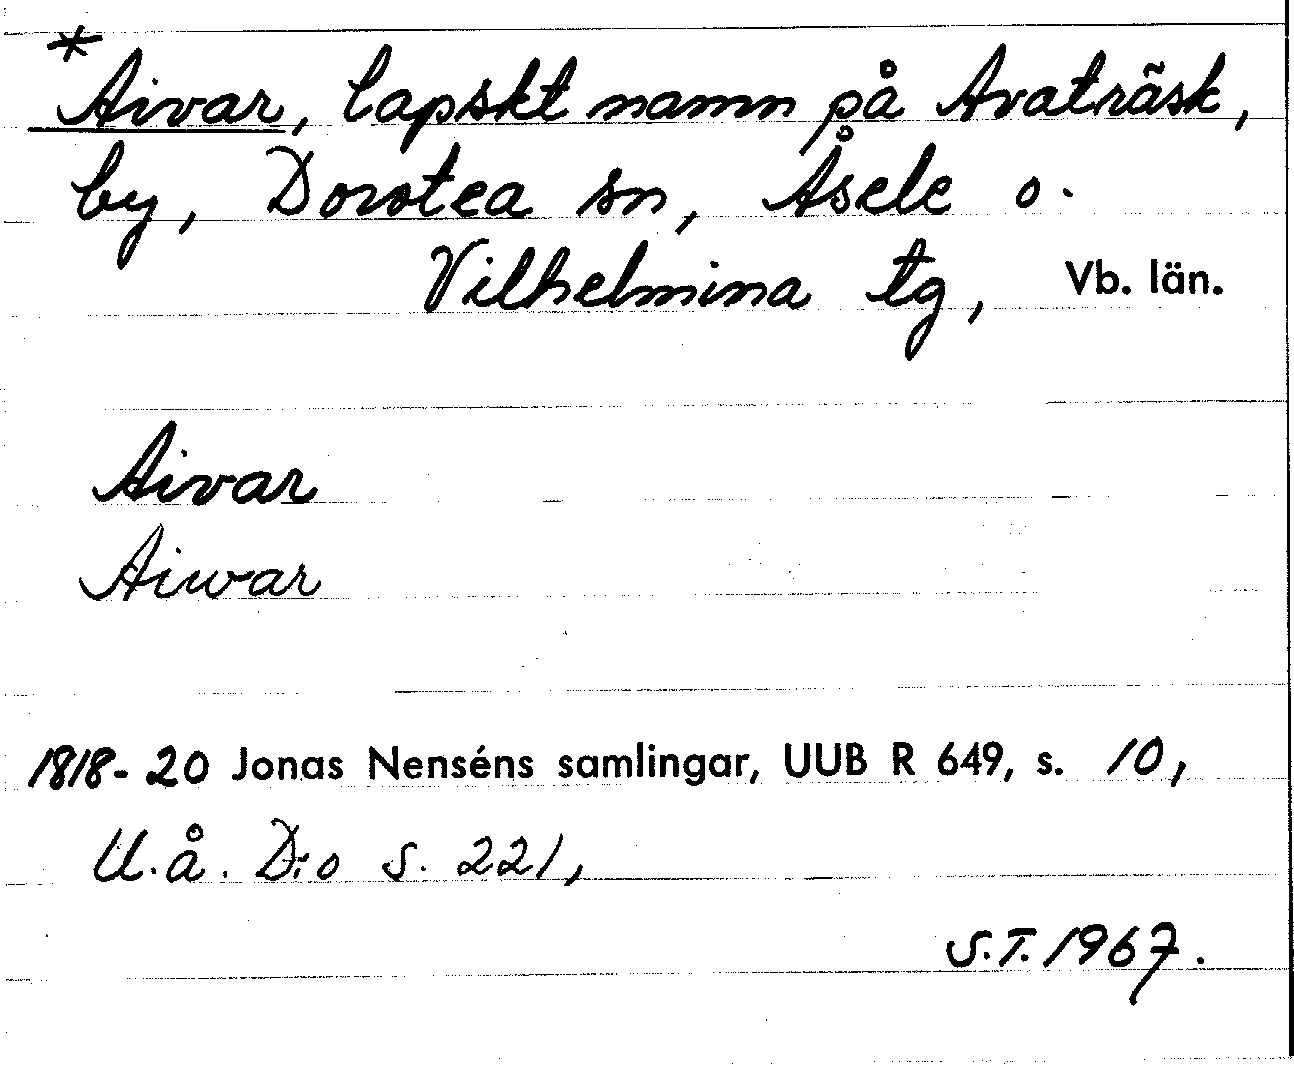 *Aivar, lapskt namn på Avaträsk,
by, Dorotea sn, Åsele o.
Vilhelmina tg, Vb. län.
Aivar
Aiwar
1818-20 Jonas Nenséns samlingar, UUB R 649, s. 10,
U.å. D:o s. 221,
S.T. 1967.